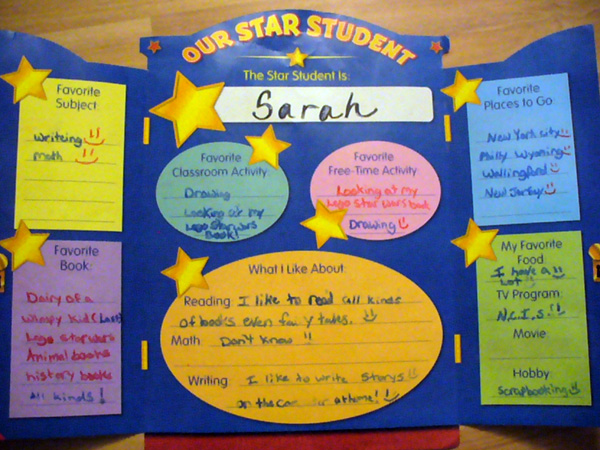 OUR STAR STUDENT
The Star Student Is:
Sarah
Favorite
Subject:
writeing
math
Favorite
Book:
Dairy of a
wimpy kid (Last)
Lego starwars
Animal books
history books
all kinds !
Favorite
Classroom Activity
Drawing
Looking at my
Lego Star wars
Book!
Favorite
Free-Time Activity
Looking at my
Lego Star wars book
Drawing
What I Like About:
Reading: I like to read all kinds
of books even fairy tales.
Math Don't know
Writing: I like to write storys
in the car or at home!
Favorite
Places to Go
New York city
Philly Wyoming
Wallingford
New Jersey
My Favorite
Food
I have a
Lot
TV Program:
N.C.I.S.
Movie:
Hobby:
Scrapbooking